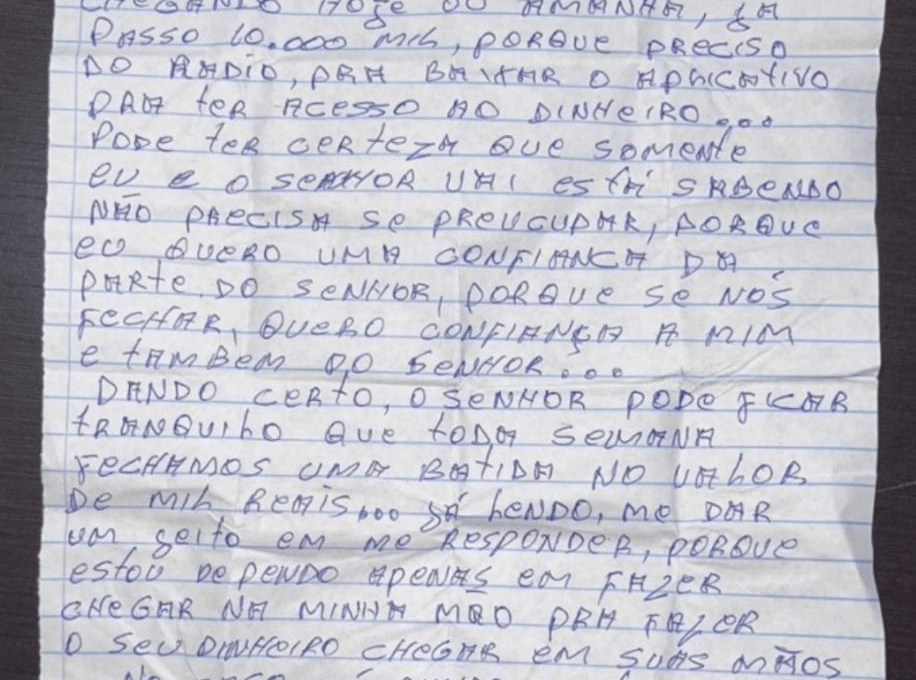 CHEGANDO HOJE OU AMANHÃ, JA
PASSO 10.000 MIL, PORQUE PRECISO
DO RADIO, PRA BAIXAR O APLICATIVO
PRA TER ACESSO AO DINHEIRO...
PODE TER CERTEZA QUE SOMENTE
EU E O SENHOR VAI ESTÁ SABENDO
NÃO PRECISA SE PREUCUPAR, PORQUE
EU QUERO UMA CONFIANCA DA
PARTE DO SENHOR, PORQUE SE NÓS
FECHAR, QUERO CONFIANÇA A MIM
E TAMBEM DO SENHOR...
DANDO CERTO, O SENHOR PODE FICAR
TRANQUILO QUE TODA SEMANA
FECHAMOS UMA BATIDA NO VALOR
DE MIL REAIS... JÁ LENDO, ME DAR
UM GEITO EM ME RESPONDER, PORQUE
ESTOU DEPENDO APENAS EM FAZER
CHEGAR NA MINHA MÃO PRA FAZER
O SEU DINHEIRO CHEGAR EM SUAS MÃOS